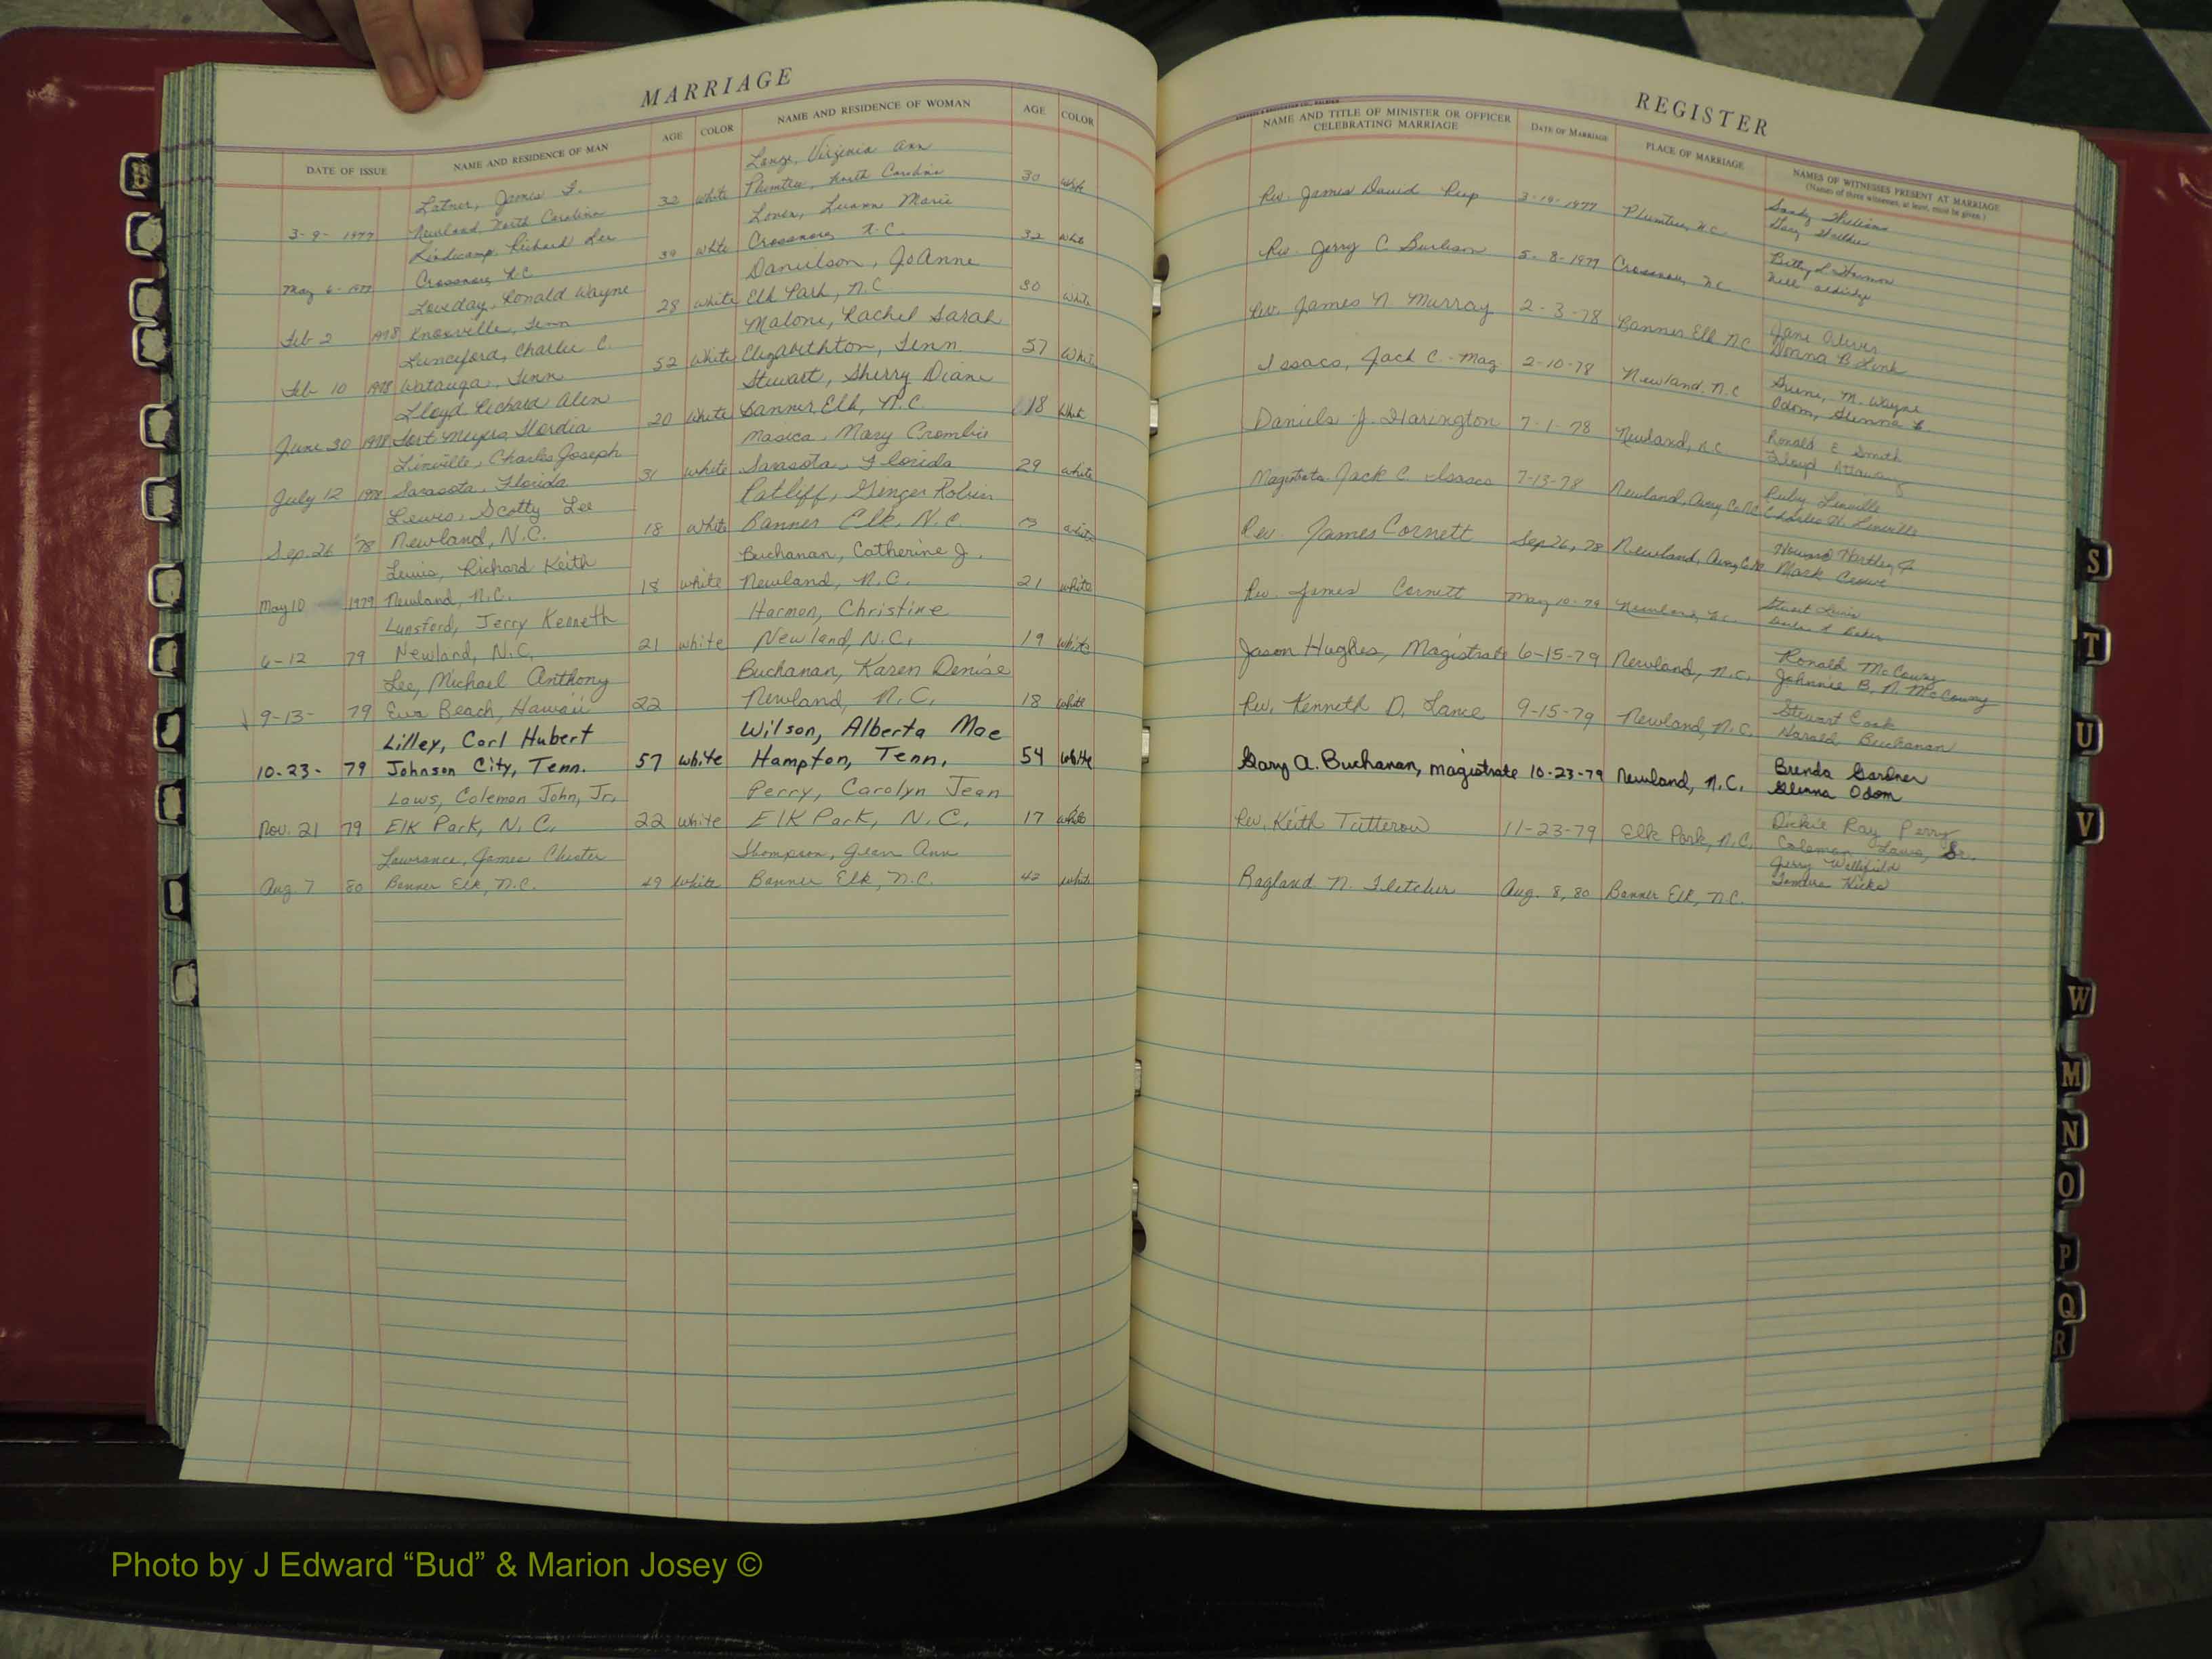 MARRIAGE
DATE OF ISSUE NAME AND RESIDENCE OF MAN AGE COLOR NAME AND RESIDENCE OF WOMAN AGE COLOR
Latner, James Lange, Virginia Ann
3-9-1977 Newland North Carolina 32 White Plumtree, North Carolina 30 White
Richard Lee Luann Marie
May 6-1977 Crossnore, N.C. 39 White Crossnore, N.C. 32 White
Loveday, Ronald Wayne Danielson, JoAnne
Feb 2 1978 Knoxville, Tenn 28 White Elk Park, N.C 30 White
Lunceford, Charlie C. Malone, Rachel Sarah
Feb 10 1978 Watauga, Tenn 52 White Elizabethton, Tenn 57 White
Lloyd Richard Alen Stewart, Sherry Diane
June 30 1978 Fort Meyers, Flordia 20 White Banner Elk, N.C. 18 White
Linville, Charles Joseph Masica, Mary Crombie
July 12 1978 Sarasota, Florida 31 white Sarasota, Florida 29 white
Lewis, Scotty Lee Ginger Robin
Sep. 26 '78 Newland, N.C. 18 white Banner Elk, N.C. white
Lewis, Richard Keith Buchanan, Catherine J.
May 10 1979 Newland, N.C. 18 white Newland, N.C. 21 white
Lunsford, Jerry Kenneth Harmon, Christine
6-12 79 Newland, N.C. 21 white Newland, N.C. 19 white
Lee, Michael Anthony Buchanan, Karen Denise
9-13- 79 Ewa Beach, Hawaii 22 Newland, N.C. 18 white
Lilley, Carl Hubert Wilson, Alberta Mae
10-23- 79 Johnson City, Tenn. 57 white Hampton, Tenn. 54 white
Laws, Coleman John, Jr. Perry, Carolyn Jean
Nov. 21 79 Elk Park, N.C. 22 white Elk Park, N.C. 17 white
Lawrance, James Chester Thompson, Jean Ann
Aug. 7 80 Banner Elk, N.C. 49 white Banner Elk, N.C. 42 white
REGISTER
NAME AND TITLE OF MINISTER OR OFFICER CELEBRATING MARRIAGE DATE OF MARRIAGE PLACE OF MARRIAGE NAMES OF WITNESSES PRESENT AT MARRIAGE
(Names of three witnesses, at least, must be given.)
Rev. James David 3-19-1977 Plumtree, N.C. Sandy
Gary
Rev. Jerry C. Burleson 5-8-1977 Crossnore, N.C. Betty L. Harmon
Nell Aldridge
Rev. James N. Murray 2-3-78 Banner Elk NC Jane
Donna B. Link
Issacs, Jack C.-Mag. 2-10-78 Newland. N.C Greene, M. Wayne
Odom, Glenna
Daniels J. Harington 7-1-78 Newland, N.C. Ronald E Smith
Floyd
Magistrate Jack C. Isaacs 7-13-78 Newland, Avery Co. NC Ruby Linville
Charles W. Linville
Rev. James Cornett Sep 26, 78 Newland, Avery Co. NC Hartley
Mack
Rev. James Cornett May 10-79 Newland, N.C. Stuart Lewis
Baker
Jason Hughes, Magistrate 6-15-79 Newland, N.C. Ronald McCoury
Johnnie B. N. McCoury
Rev. Kenneth D. Lance 9-15-79 Newland, N.C. Stewart Cook
Harold Buchanan
Gary A. Buchanan, magistrate 10-23-79 Newland, N.C. Brenda Gardner
Glenna Odom
Rev. Keith Tutterow 11-23-79 Elk Park, N.C. Dickie Ray Perry
Coleman Laws, Sr.
Ragland N. Fletcher Aug. 8, 80 Banner Elk, N.C. Jerry
Tondra Hicks
S
T
U
V
W
M
N
O
P
Q
R
Photo by J Edward “Bud” & Marion Josey ©